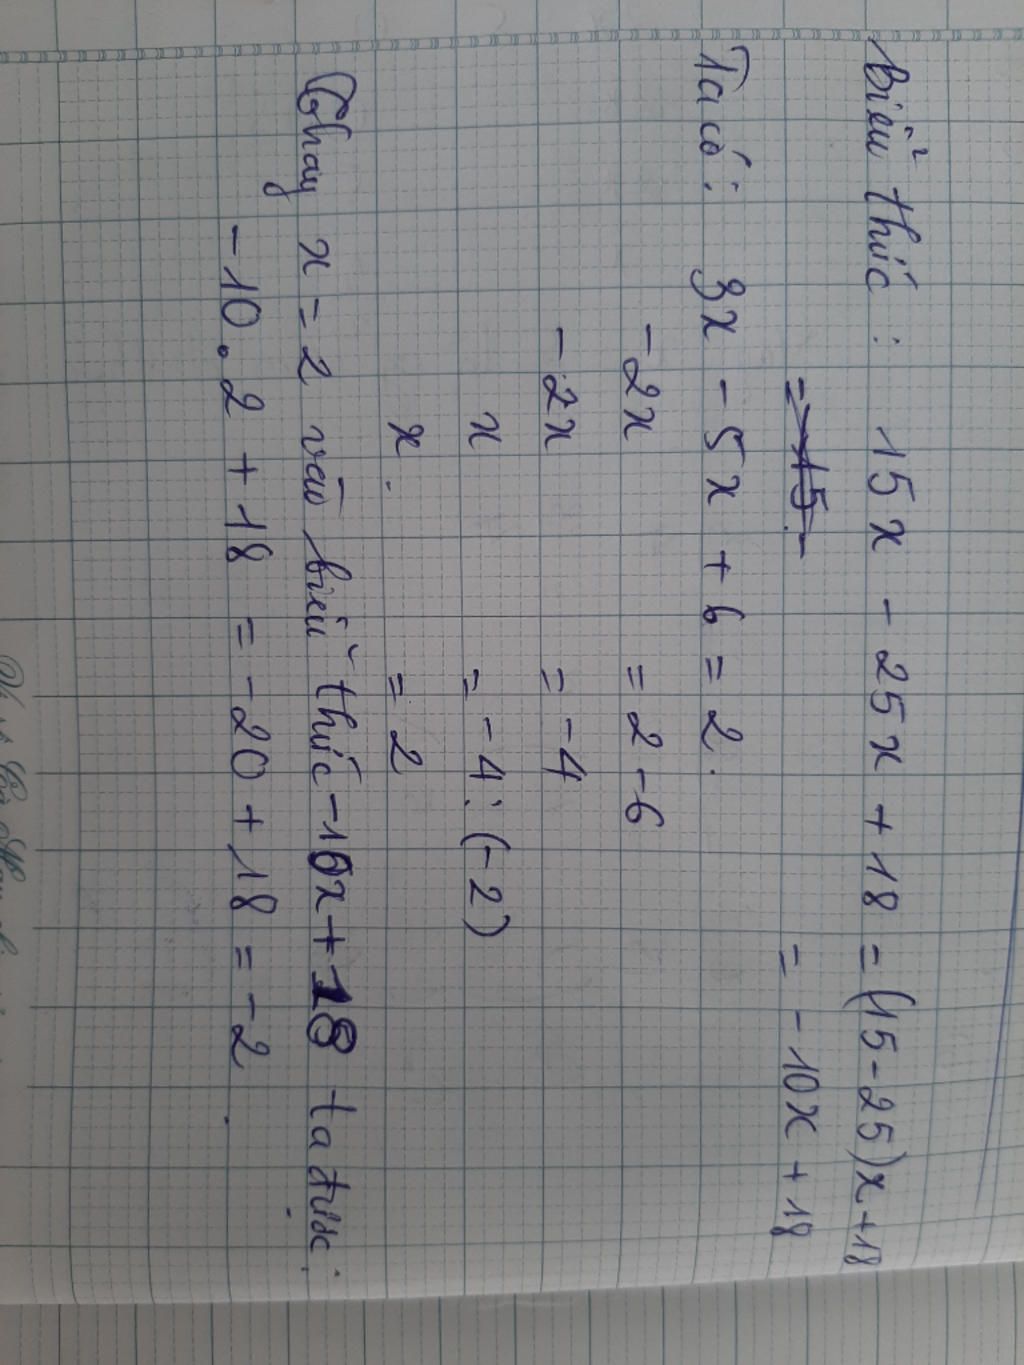 Biểu thức : 15x - 25x + 18 = (15-25)x+18
= 15 - = -10x + 18
Ta có : 3x - 5x + 6 = 2.
-2x = 2 - 6
-2x = -4
x = -4 : (-2)
x = 2
Thay x = 2 vào biểu thức -10x+18 ta được :
-10 . 2 + 18 = -20 + 18 = -2